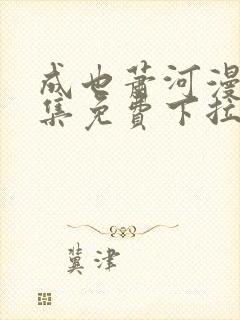 成也萧河漫
集免費下拉
冀津